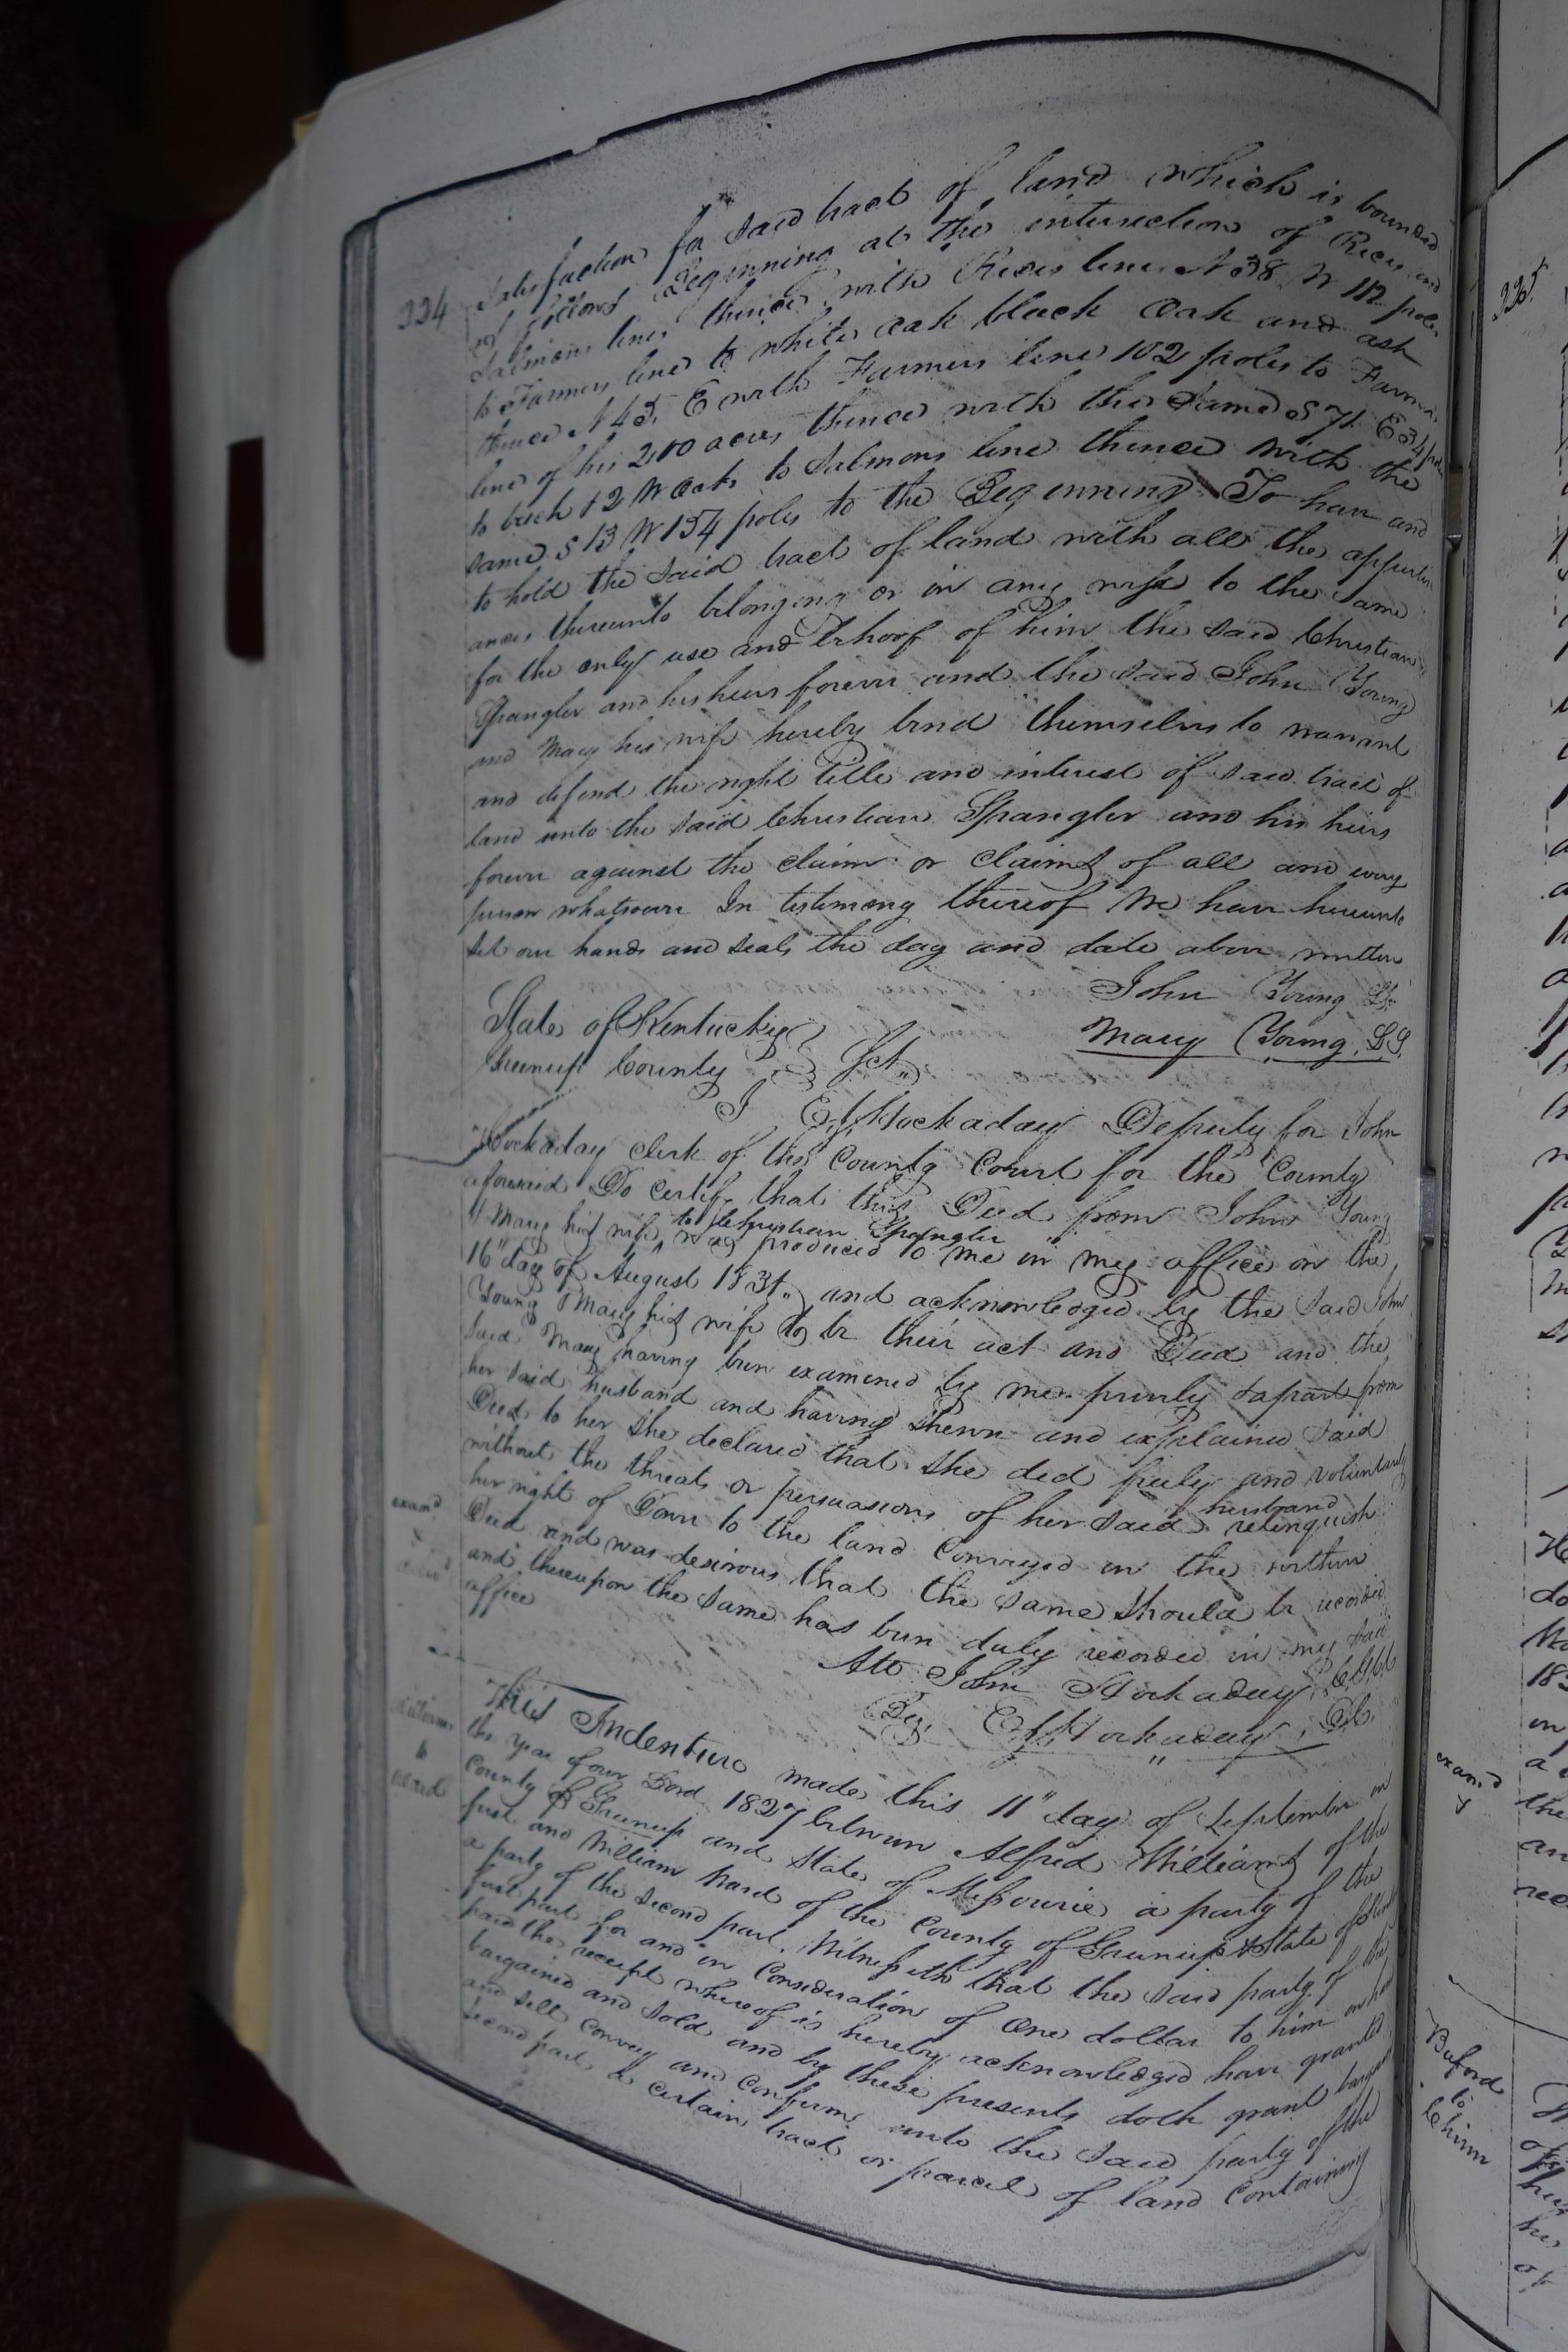 334
Satisfaction for said tract of land which is bounded
as follows Beginning at the intersection of Rices and
Salmons lines thence with Rices line N 38 W 112 poles
to Farmers line to white oak black oak and ash
thence N 45 E with Farmers line 102 poles to Farmers
line of his 200 acres thence with the same S 71 E 34 poles
to beech & 2 W oaks to Salmons line thence with the
same S 13 W 154 poles to the Beginning To have and
to hold the said tract of land with all the appurten
ances thereunto belonging or in any wise to the same
for the only use and behoof of him the said Christian
Spangler and his heirs forever and the said John Young
and Mary his wife hereby bind themselves to warrant
and defend the right title and interest of said tract of
land unto the said Christian Spangler and his heirs
forever against the claim or claims of all and every
person whatsoever In testimony thereof We have hereunto
set our hands and seals the day and date above written
John Young LS
Mary Young LS
State of Kentucky
Greenup County Sct
I Hockaday Deputy for John
Hockaday clerk of the County Court for the County
aforesaid Do certify that this Deed from John Young
& Mary his wife to Christian Spangler was produced to me in my office on the
16" day of August 1831 and acknowledged by the said John
Young & Mary his wife to be their act and Deed and the
said Mary having been examined by me privily & apart from
her said husband and having shewn and explained said
Deed to her she declared that she did freely and voluntarily
without the threats or persuasions of her said husband relinquish
her right of Dower to the land conveyed in the within
Deed and was desirous that the same should be recorded
and thereupon the same has been duly recorded in my said
office
Att John Hockaday
By Hockaday DC
examd
Williams
to
Ward
This Indenture made this 11" day of September in
the year of our Lord 1827 between Alfred Williams of the
County of Greenup and State of Missourie a party of the
first and William Ward of the County of Greenup & State of
a party of the second part. Witnesseth that the said party of the
first part for and in Consideration of One dollar to him in hand
paid the receipt whereof is hereby acknowledged have granted
bargained and sold and by these presents doth grant bargain
and sell convey and confirm unto the said party of the
second part a certain tract or parcel of land containing
335
examd
Buford
to
Chinn